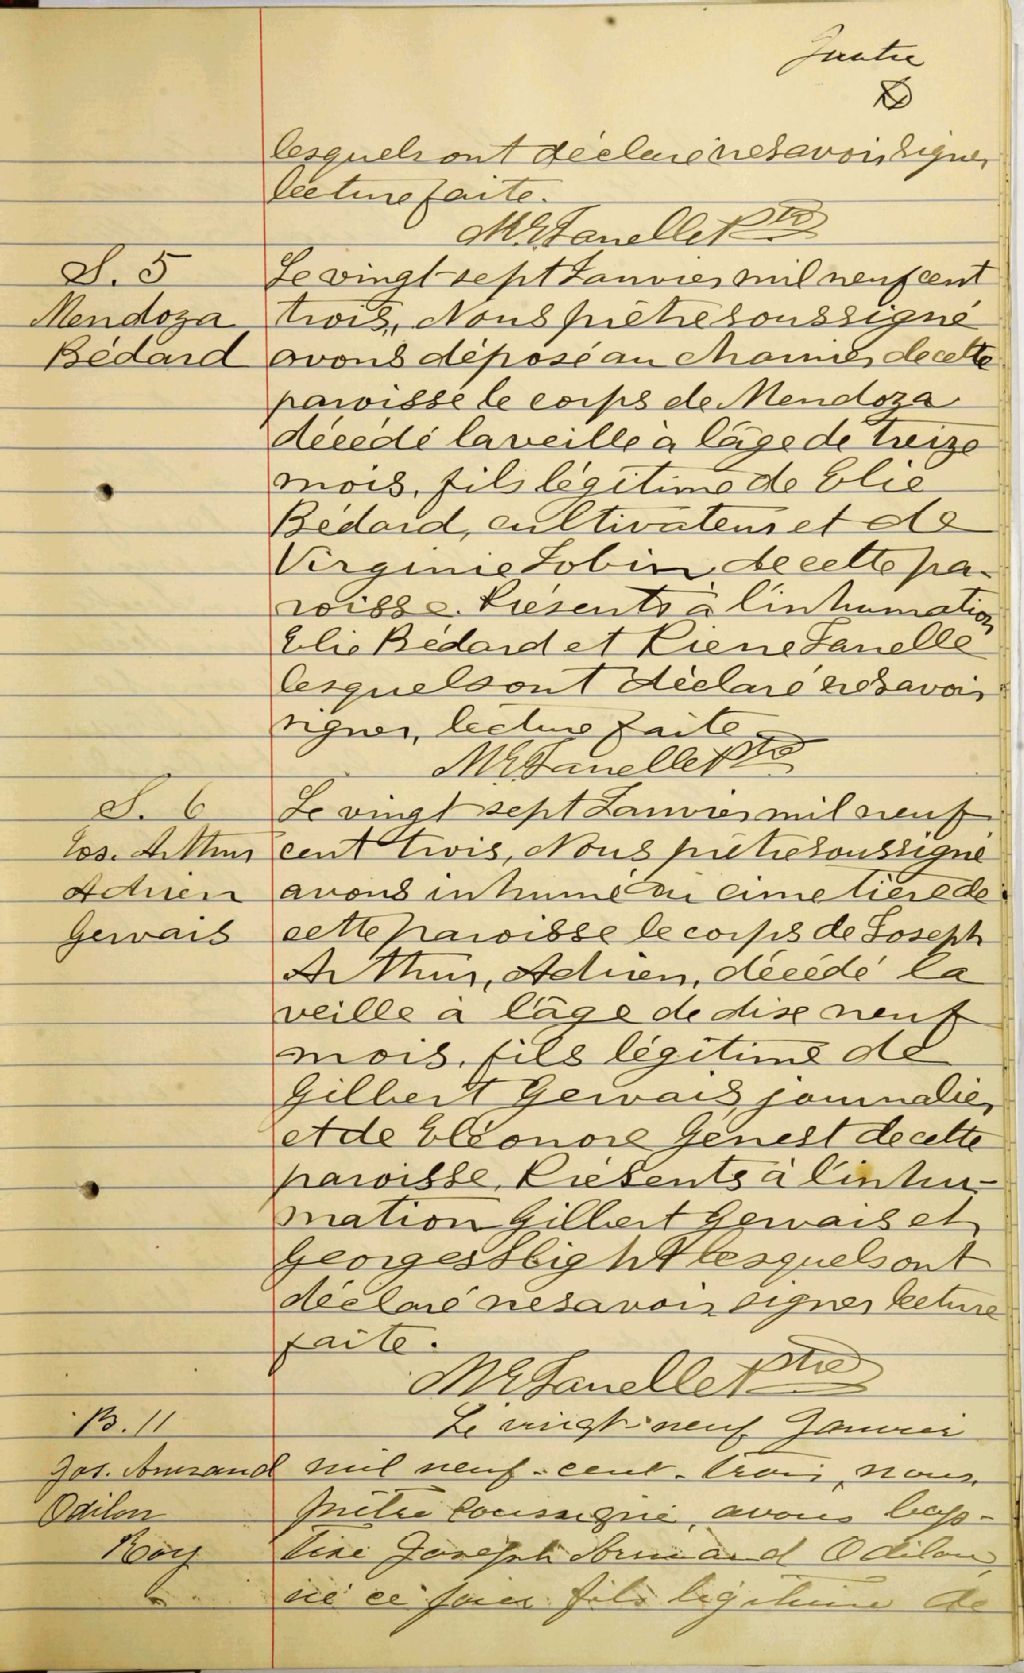 Quatre
lesquels ont déclaré ne savoir signer
lecture faite.
Ptre
S. 5
Mendoza
Bédard
Le vingt-sept Janvier mil neuf cent
trois, Nous prêtre soussigné
avons déposé au charnier de cette
paroisse le corps de Mendoza
décédé la veille à l'âge de treize
mois, fils légitime de Elie
Bédard, cultivateur et de
Virginie Tobin de cette pa-
roisse. Présents à l'inhumation
Elie Bédard et Pierre Janelle
lesquels ont déclaré ne savoir
signer, lecture faite
M E Janelle Ptre
S. 6
Jos. Arthur
Adrien
Gervais
Le vingt-sept Janvier mil neuf
cent trois, Nous prêtre soussigné
avons inhumé au cimetière de
cette paroisse le corps de Joseph
Arthur, Adrien, décédé la
veille à l'âge de dix neuf
mois, fils légitime de
Gilbert Gervais journalier
et de Eléonore Genest de cette
paroisse, Présents à l'inhu-
mation Gilbert Gervais et
Georges Hight lesquels ont
déclaré ne savoir signer lecture
faite.
M E Janelle Ptre
B. 11
Jos. Armand
Odilon
Roy
Le vingt-neuf Janvier
mil neuf-cent-trois, nous
prêtre soussigné, avons bap-
tisé Joseph Armand Odilon,
né ce jour fils légitime de